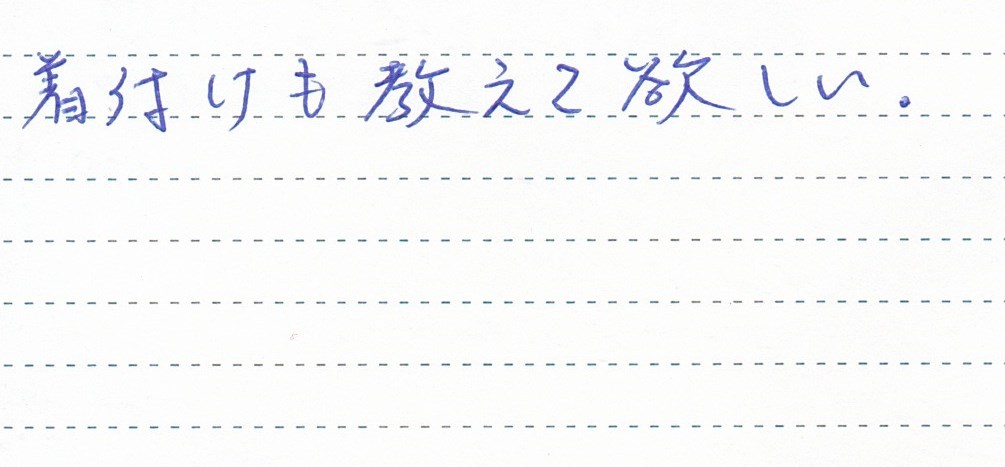 着付けも教えて欲しい.